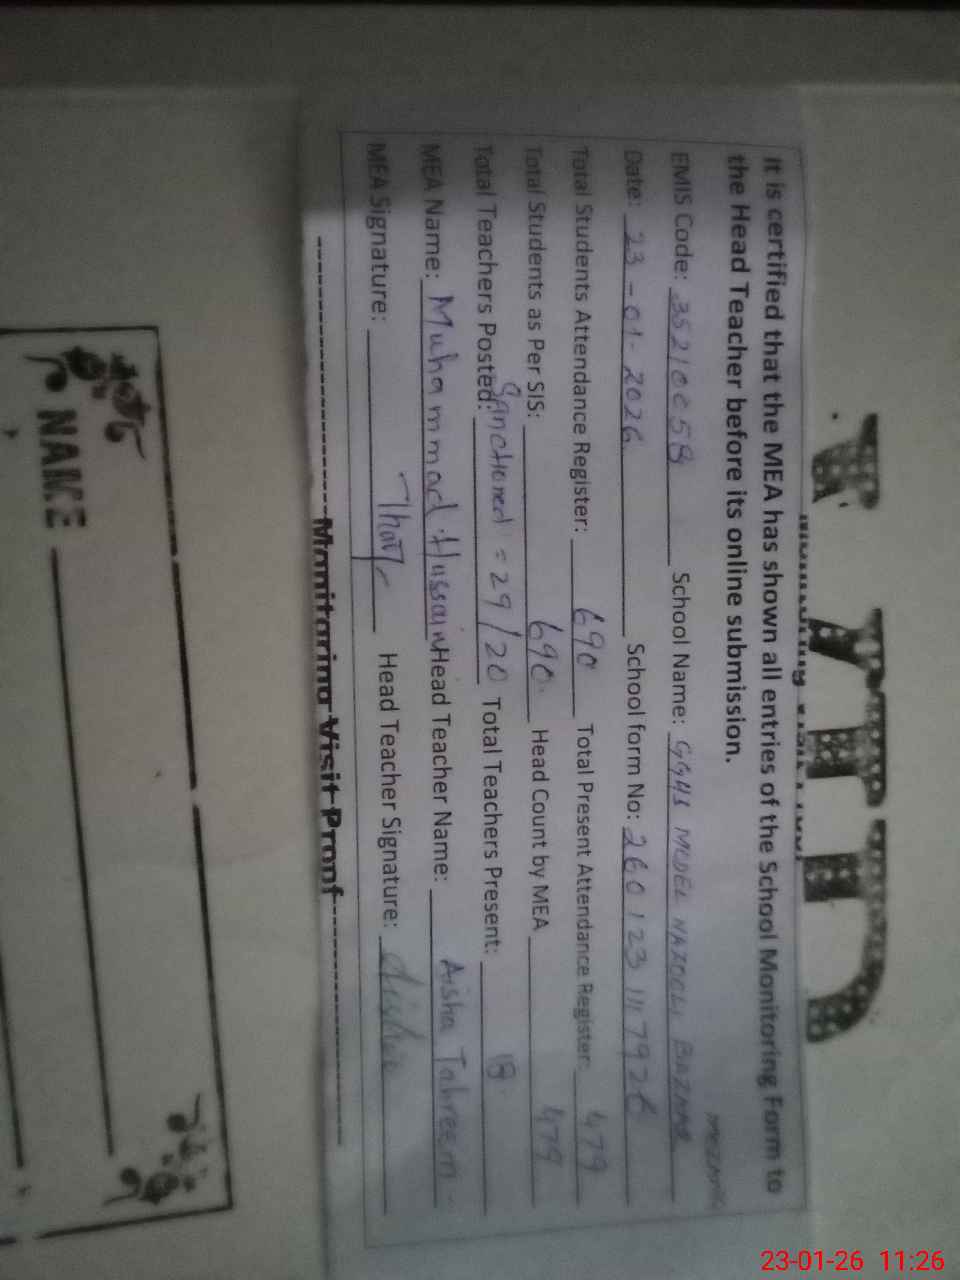 It is certified that the MEA has shown all entries of the School Monitoring Form to
the Head Teacher before its online submission.
EMIS Code: 35210058 School Name: GGHS MODEL BAZAR
Date: 23-01-2026 School form No: 260123117926
Total Students Attendance Register: 690 Total Present Attendance Register: 479
Total Students as Per SIS: 690 Head Count by MEA 479
Total Teachers Posted: Sanctioned = 29/20 Total Teachers Present: 18
MEA Name: Muhammad Hussain Head Teacher Name: Aisha Tahreem
MEA Signature: Head Teacher Signature: Aisha
Monitoring Visit Proof
NAME
23-01-26 11:26